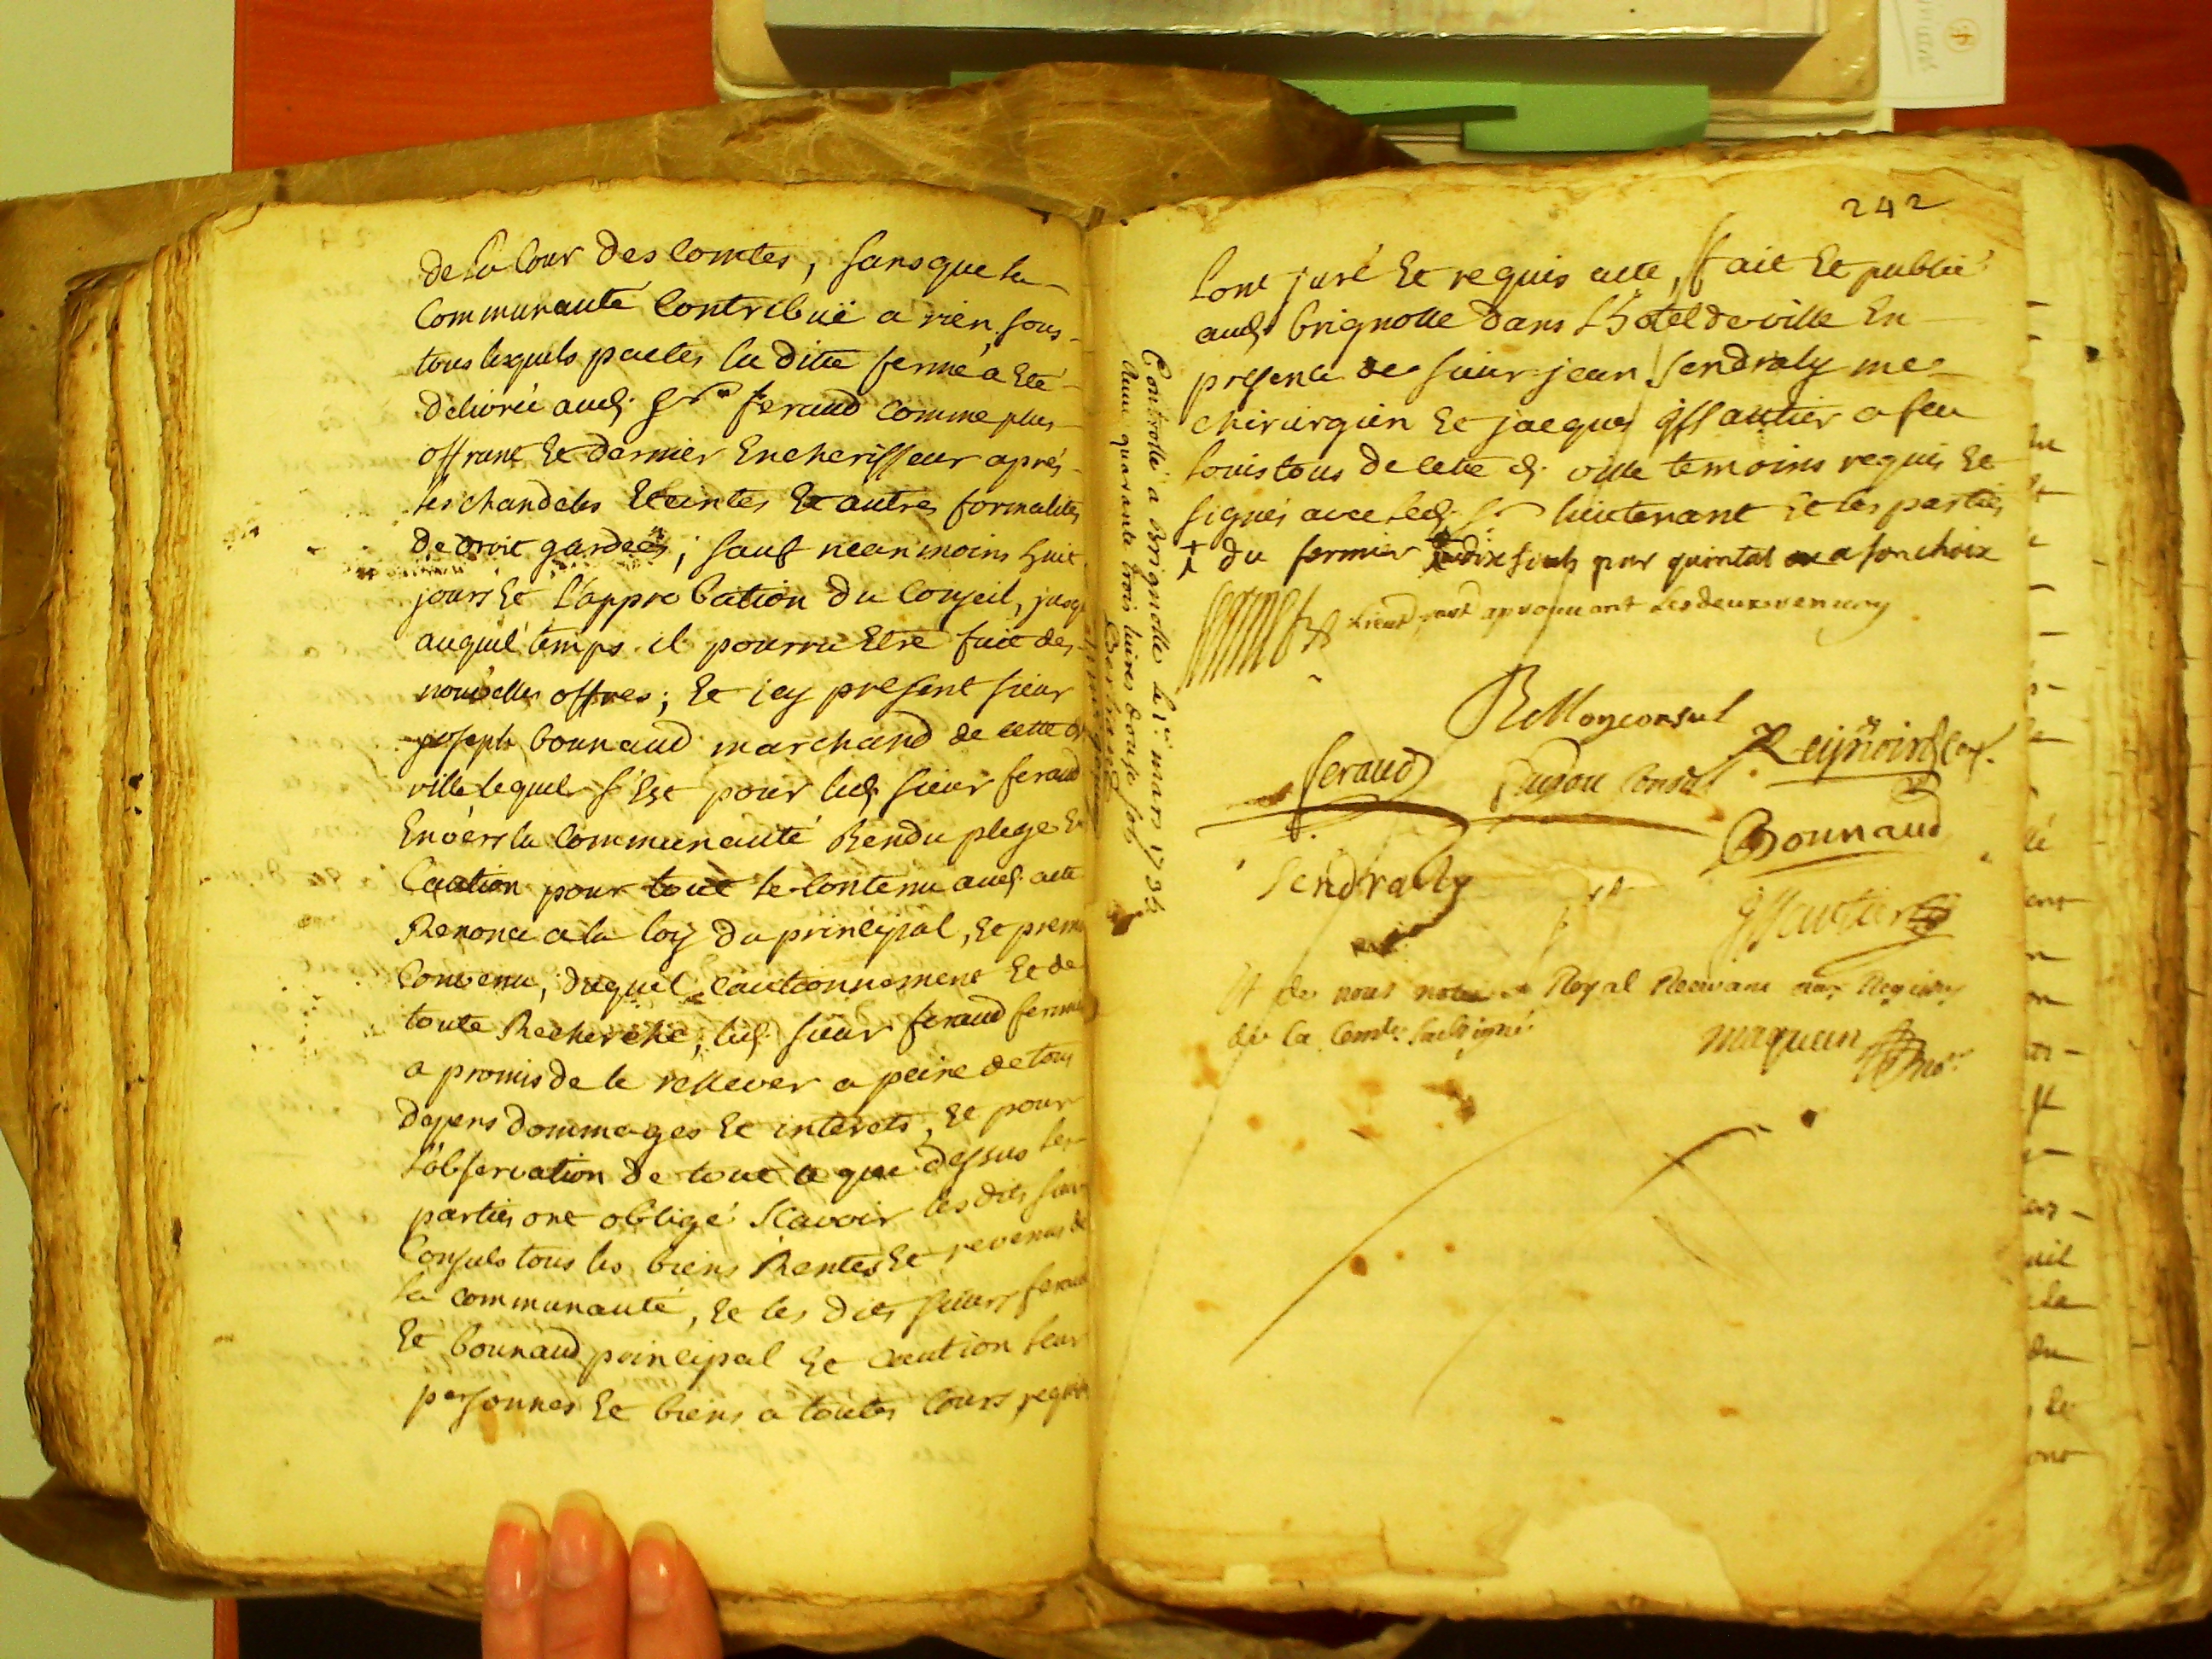 de La Cour des Comtes, sans que la
Communauté Contribuë a rien sous
tous lesquels pactes la ditte ferme a Eté
delivrée aud. Sr. feraud comme plus
offrant Et dernier Encherisseur aprés
les chandeles Eteintes Et autres formalites
de droit gardeés; sauf neanmoins huit
jours Et L'approbation du Conseil, jusq
auquel temps il pourra Etre fait des
nouvelles offres; Et icy present sieur
joseph bounaud marchand de cette d.
ville lequel s'Est pour led. sieur feraud
Envers la Communauté Rendu plege Et
Caution pour tout le Contenu aud. acte
Renoncé a la loy du principal, Et premier
Convenu, duquel cautionnement Et de
toute Recherche, led. sieur feraud fermier
a promis de le rellever a peine de tous
depens dommages Et interets, Et pour
L'observation de tout ce que dessus les
parties ont obligé Scavoir les dits sieurs
Consuls tous les biens Rentes Et revenus de
la communauté, Et les dits sieurs feraud
Et bounaud principal Et Caution leur
personnes Et biens a toutes Cours
242
L'ont juré Et requis acte, ffait Et publié
aud. brignolle dans L'hotel de ville En
presence de sieur jean Sendraly me
chirurgien Et jacques Issautier a feu
Louis tous de cette d. ville temoins requis Et
signés avec led. Sr lieutenant Et les parties
‡ du fermier dix sols par quintal a son choix
Lieut gnal aprouvant Les deux renvoy
Consul
feraud
Consul
Bounaud
Sendrally
Issautier
Et de nous Royal Recivant aux
de la Comté. soubsigné
maquan
Controllé a Brignolle le 1r. mars 173
quarante trois livres douse sols